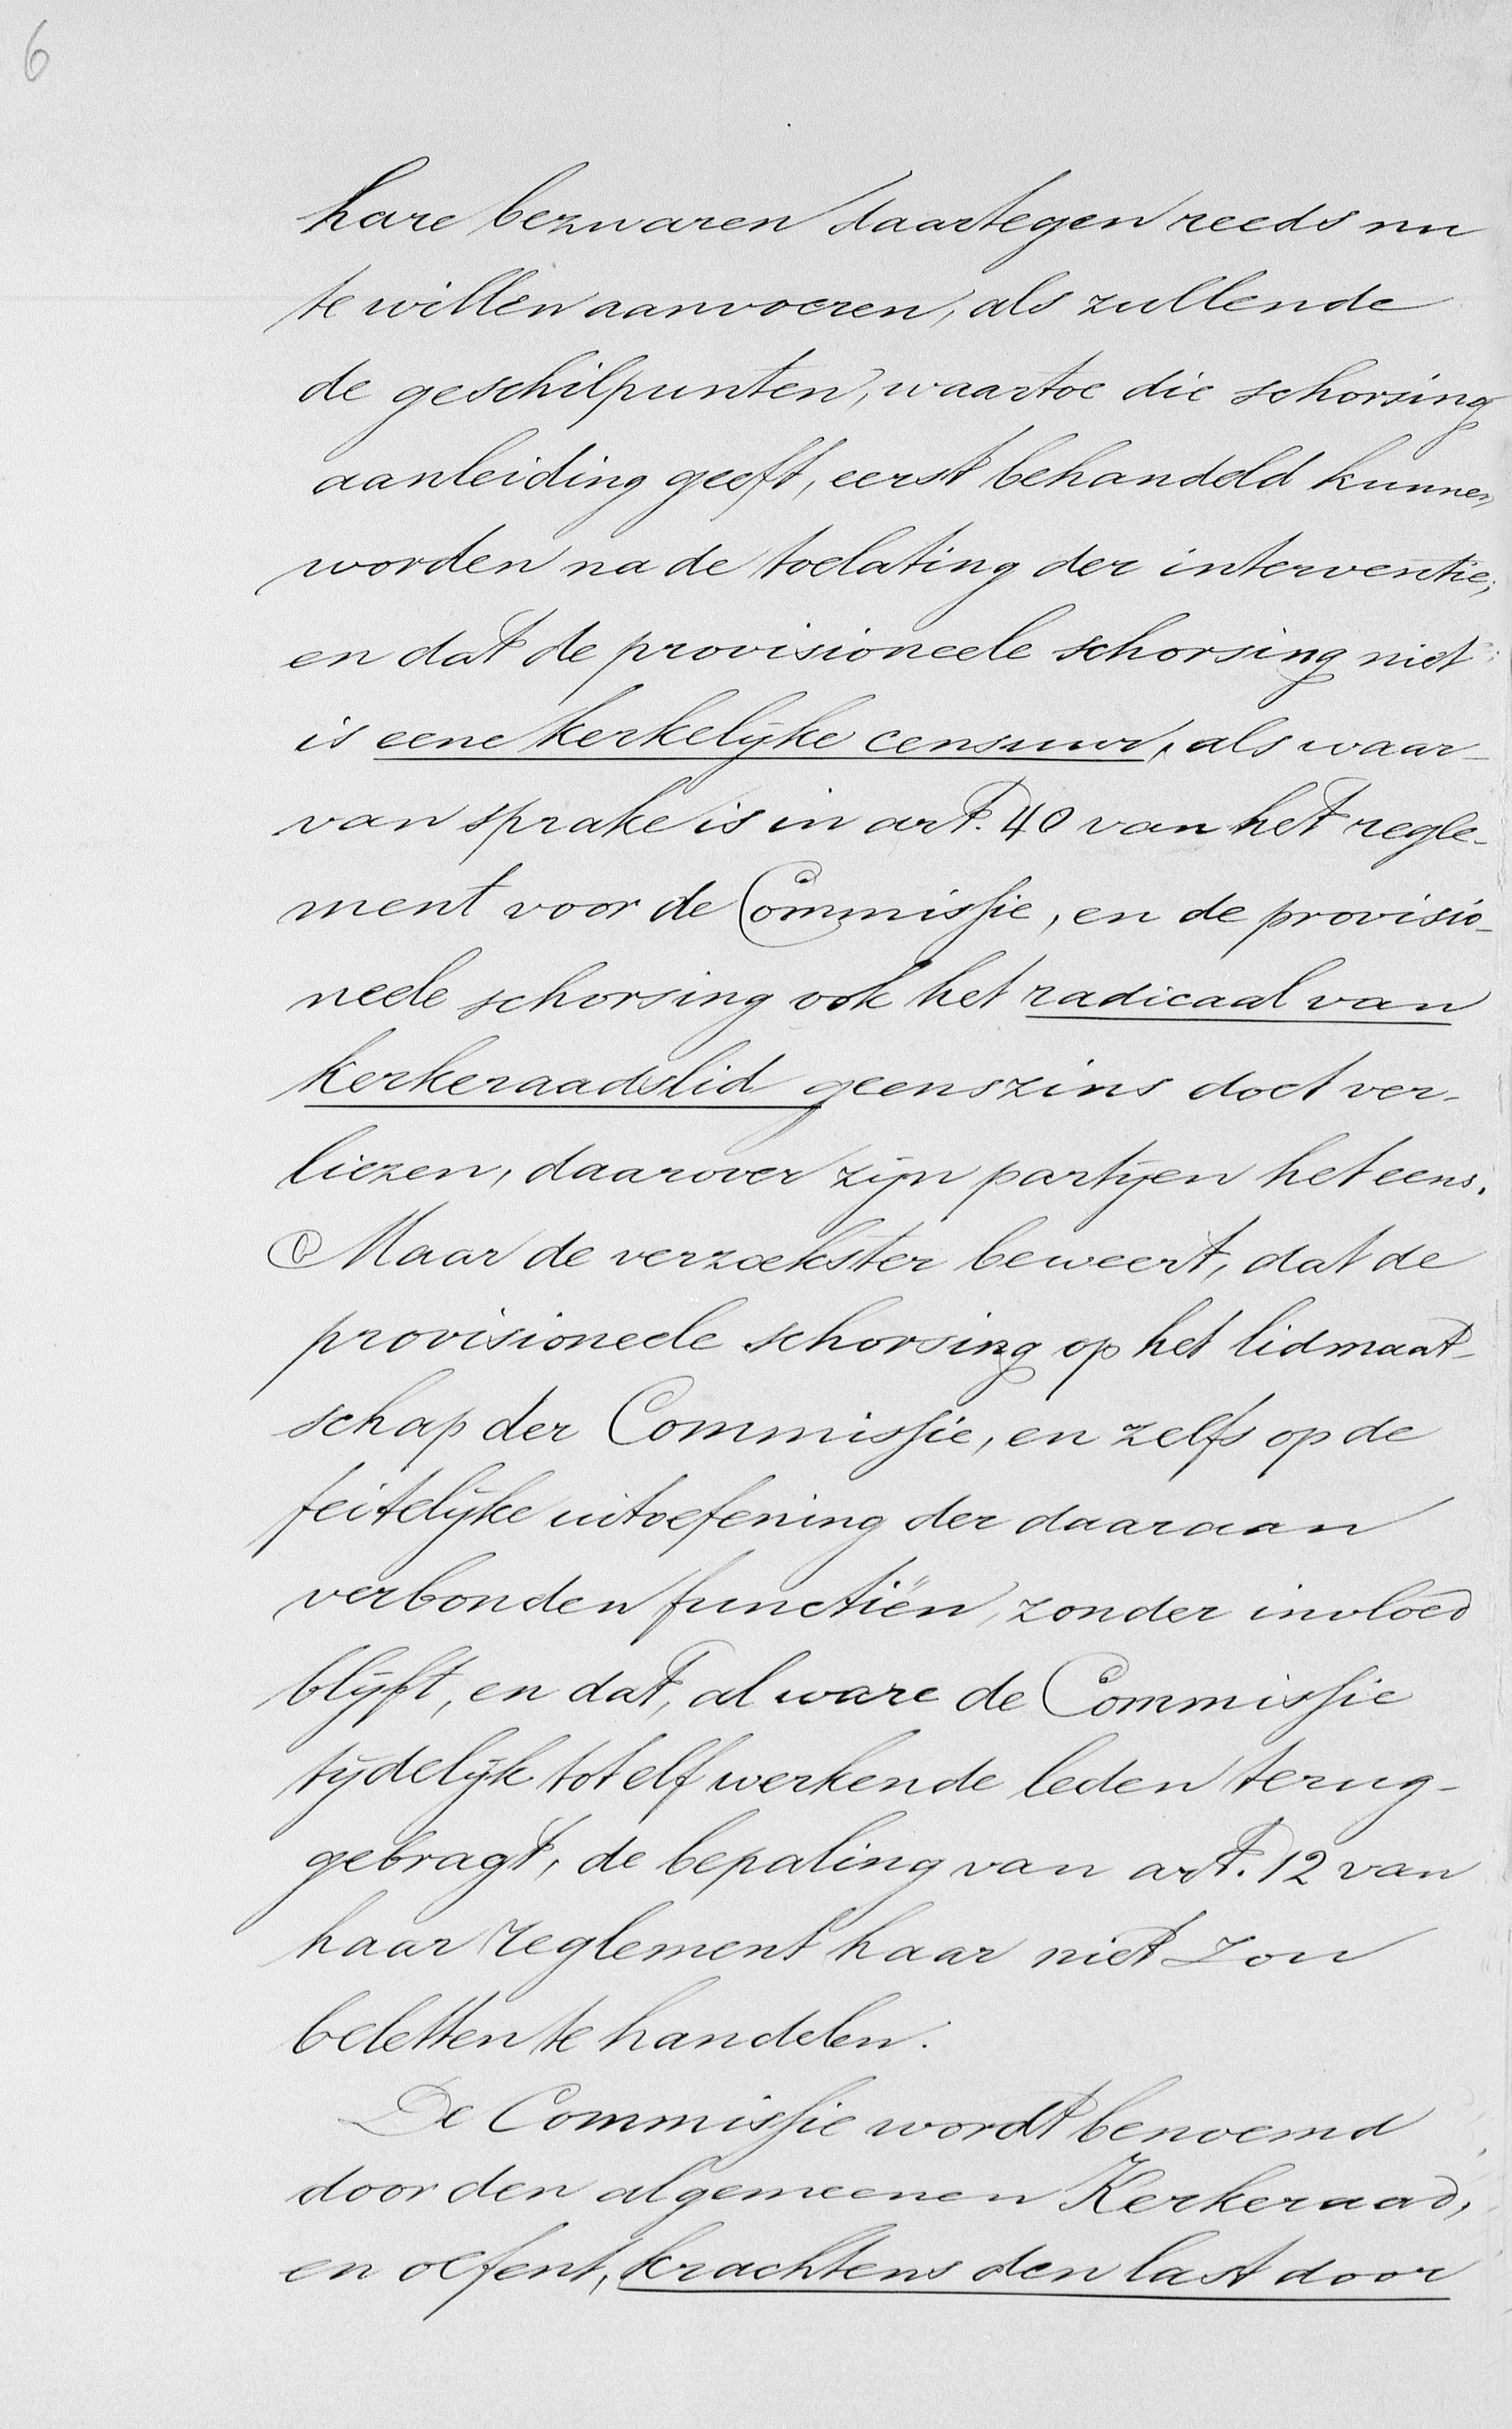 6
hare bezwaren daartegen reeds nu
te willen aanvoeren, als zullende
de geschilpunten, waartoe die schorsing
aanleiding geeft, eerst behandeld kunnen
worden na de toelating der interventie;
en dat de provisioneele schorsing niet
is eene kerkelijke censuur, als waar-
van sprake is in art. 40 van het regle-
ment voor de Commissie, en de provisio-
neele schorsing ook het radicaal van
kerkeraadslid geenszins doet ver-
liezen, daarover zijn partijen het eens.
Maar de verzoekster beweert, dat de
provisioneele schorsing op het lidmaat-
schap der Commissie, en zelfs op de
feitelijke uitoefening der daaraan
verbonden functiën, zonder invloed
blijft, en dat, al ware de Commissie
tijdelijk tot elf werkende leden terug-
gebragt, de bepaling van art. 12 van
haar reglement haar niet zou
beletten te handelen.
De Commissie wordt benoemd
door den algemeenen Kerkeraad,
en oefent, krachtens den last door